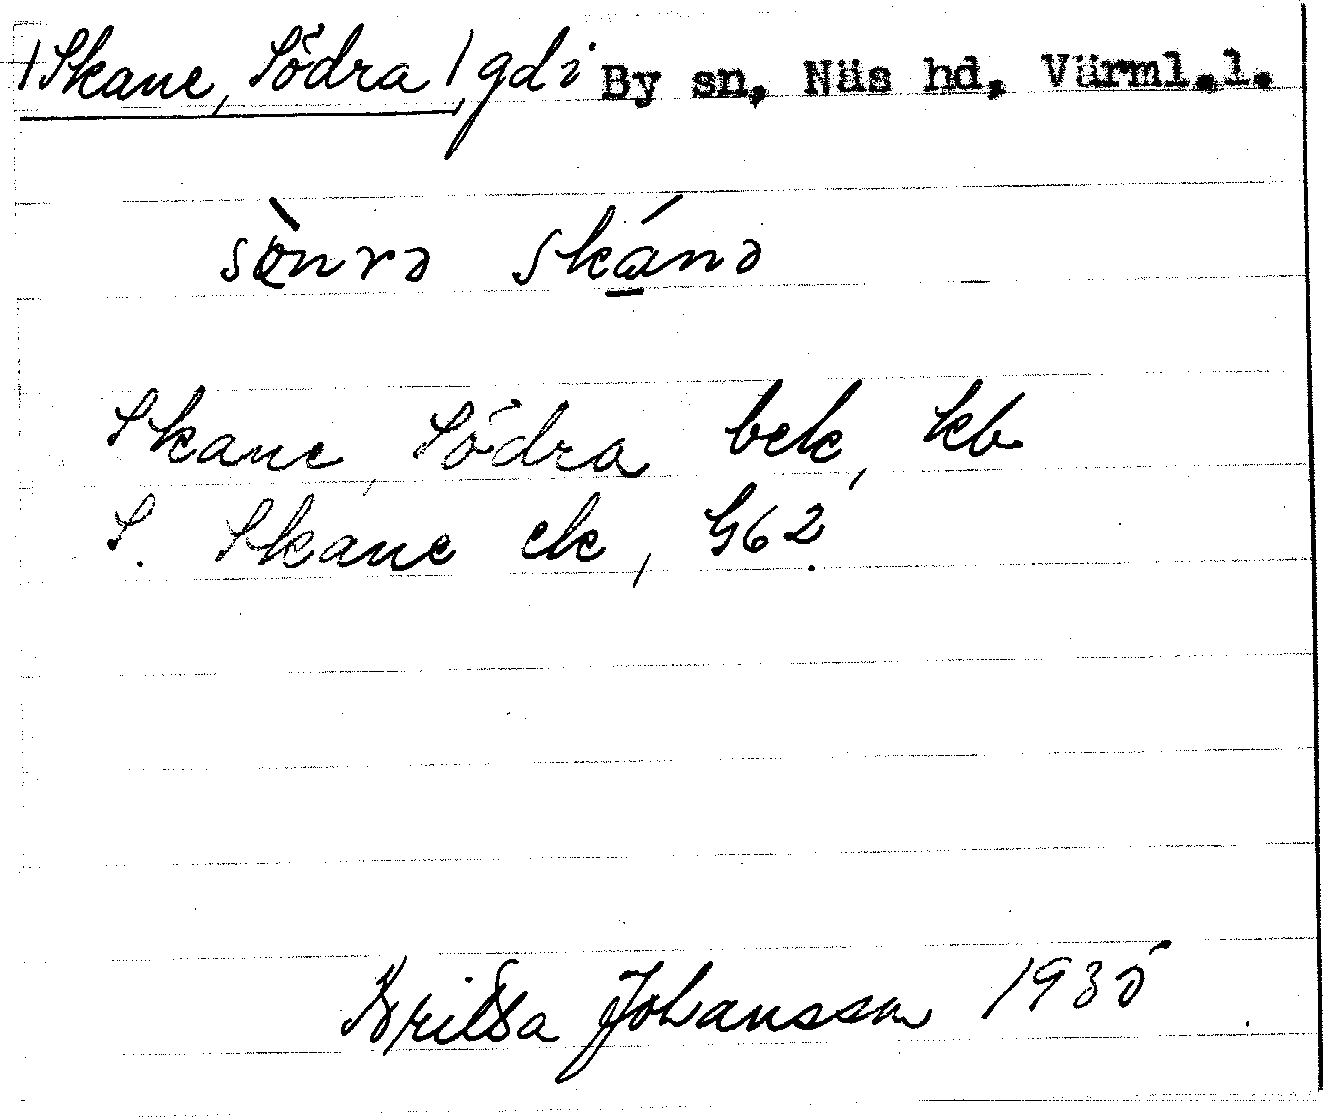 /Skane, Södra/, gd i By sn, Näs hd, Värml.l.
sö̀nrə skánə
Skane, Södra bek, kb
S. Skane ek, G62.
Britta Johansson 1935